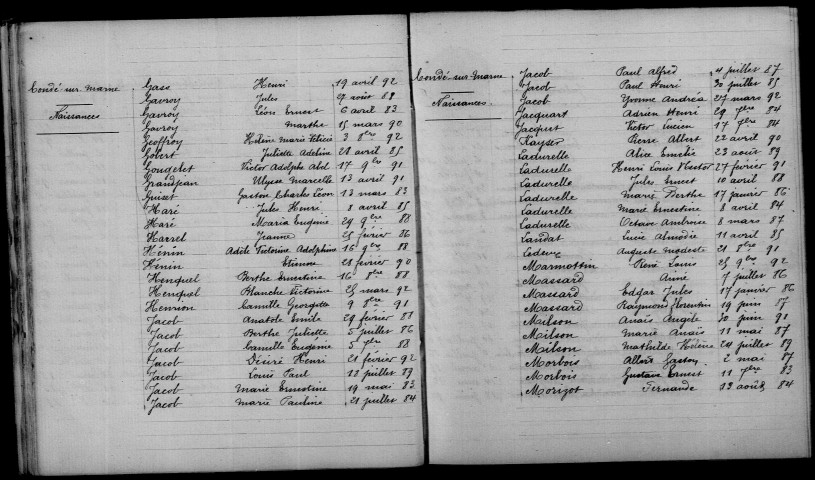 Condé-sur-Marne
Naissances
Gass Henri 19 avril 92
Gavroy Jules 9 août 88
Gavroy Léon Ernest 6 avril 83
Gavroy Marthe 15 mars 90
Geoffroy Hélène Marie Félicie 3 8bre 92
Gobert Juliette Adeline 28 avril 85
Gougelet Victor Adolphe Abel 17 9bre 91
Grandjean Ulysse Marcelle 13 avril 91
Gaston Charles Léon 13 mars 83
Haré Jules Henri 8 avril 85
Haré Maria Eugénie 29 9bre 88
Harrel Jeanne 25 février 86
Hénin Adèle Victorine Adolphine 16 9bre 88
Hénin Etienne 28 février 90
Henquel Berthe Ernestine 16 8bre 88
Henquel Blanche Victorine 25 mars 92
Henrion Camille Georgette 9 8bre 91
Jacob Anatole Emile 29 février 88
Jacob Berthe Juliette 5 juillet 86
Jacob Camille Eugénie 5 88
Jacob Désiré Henri 21 février 92
Jacob Louis Paul 18 juillet 89
Jacob Marie Ernestine 19 mai 83
Jacob Marie Pauline 21 juillet 84
Condé-sur-Marne
Naissances
Jacob Paul Alfred 4 juillet 87
Jacob Paul Henri 30 juillet 85
Jacob Yvonne Andréa 27 mars 92
Jacquart Adrien Henri 29 7bre 84
Jacquet Victor Lucien 17 7bre 84
Kayser Pierre Albert 22 avril 90
Ladurelle Alice Emélie 23 août 89
Ladurelle Henri Louis Nestor 27 février 91
Ladurelle Jules Ernest 10 avril 88
Ladurelle Marie Berthe 17 janvier 86
Ladurelle Marie Ernestine 8 avril 84
Ladurelle Octave Ambroise 8 mars 87
Landat Lucie Almodie 11 avril 85
Auguste Modeste 21 8bre 91
Marmottin René Louis 25 9bre 92
Massard Aimé 7 juillet 86
Massard Edgar Jules 17 janvier 86
Massard Raymond Florentin 19 juin 87
Milson Anaïs Angèle 30 juin 91
Milson Marie Anaïs 11 mai 87
Milson Mathilde Hélène 24 juillet 89
Morbois Gaston 2 mai 87
Morbois Gustave Ernest 11 7bre 83
Morizot Fernande 13 août 84